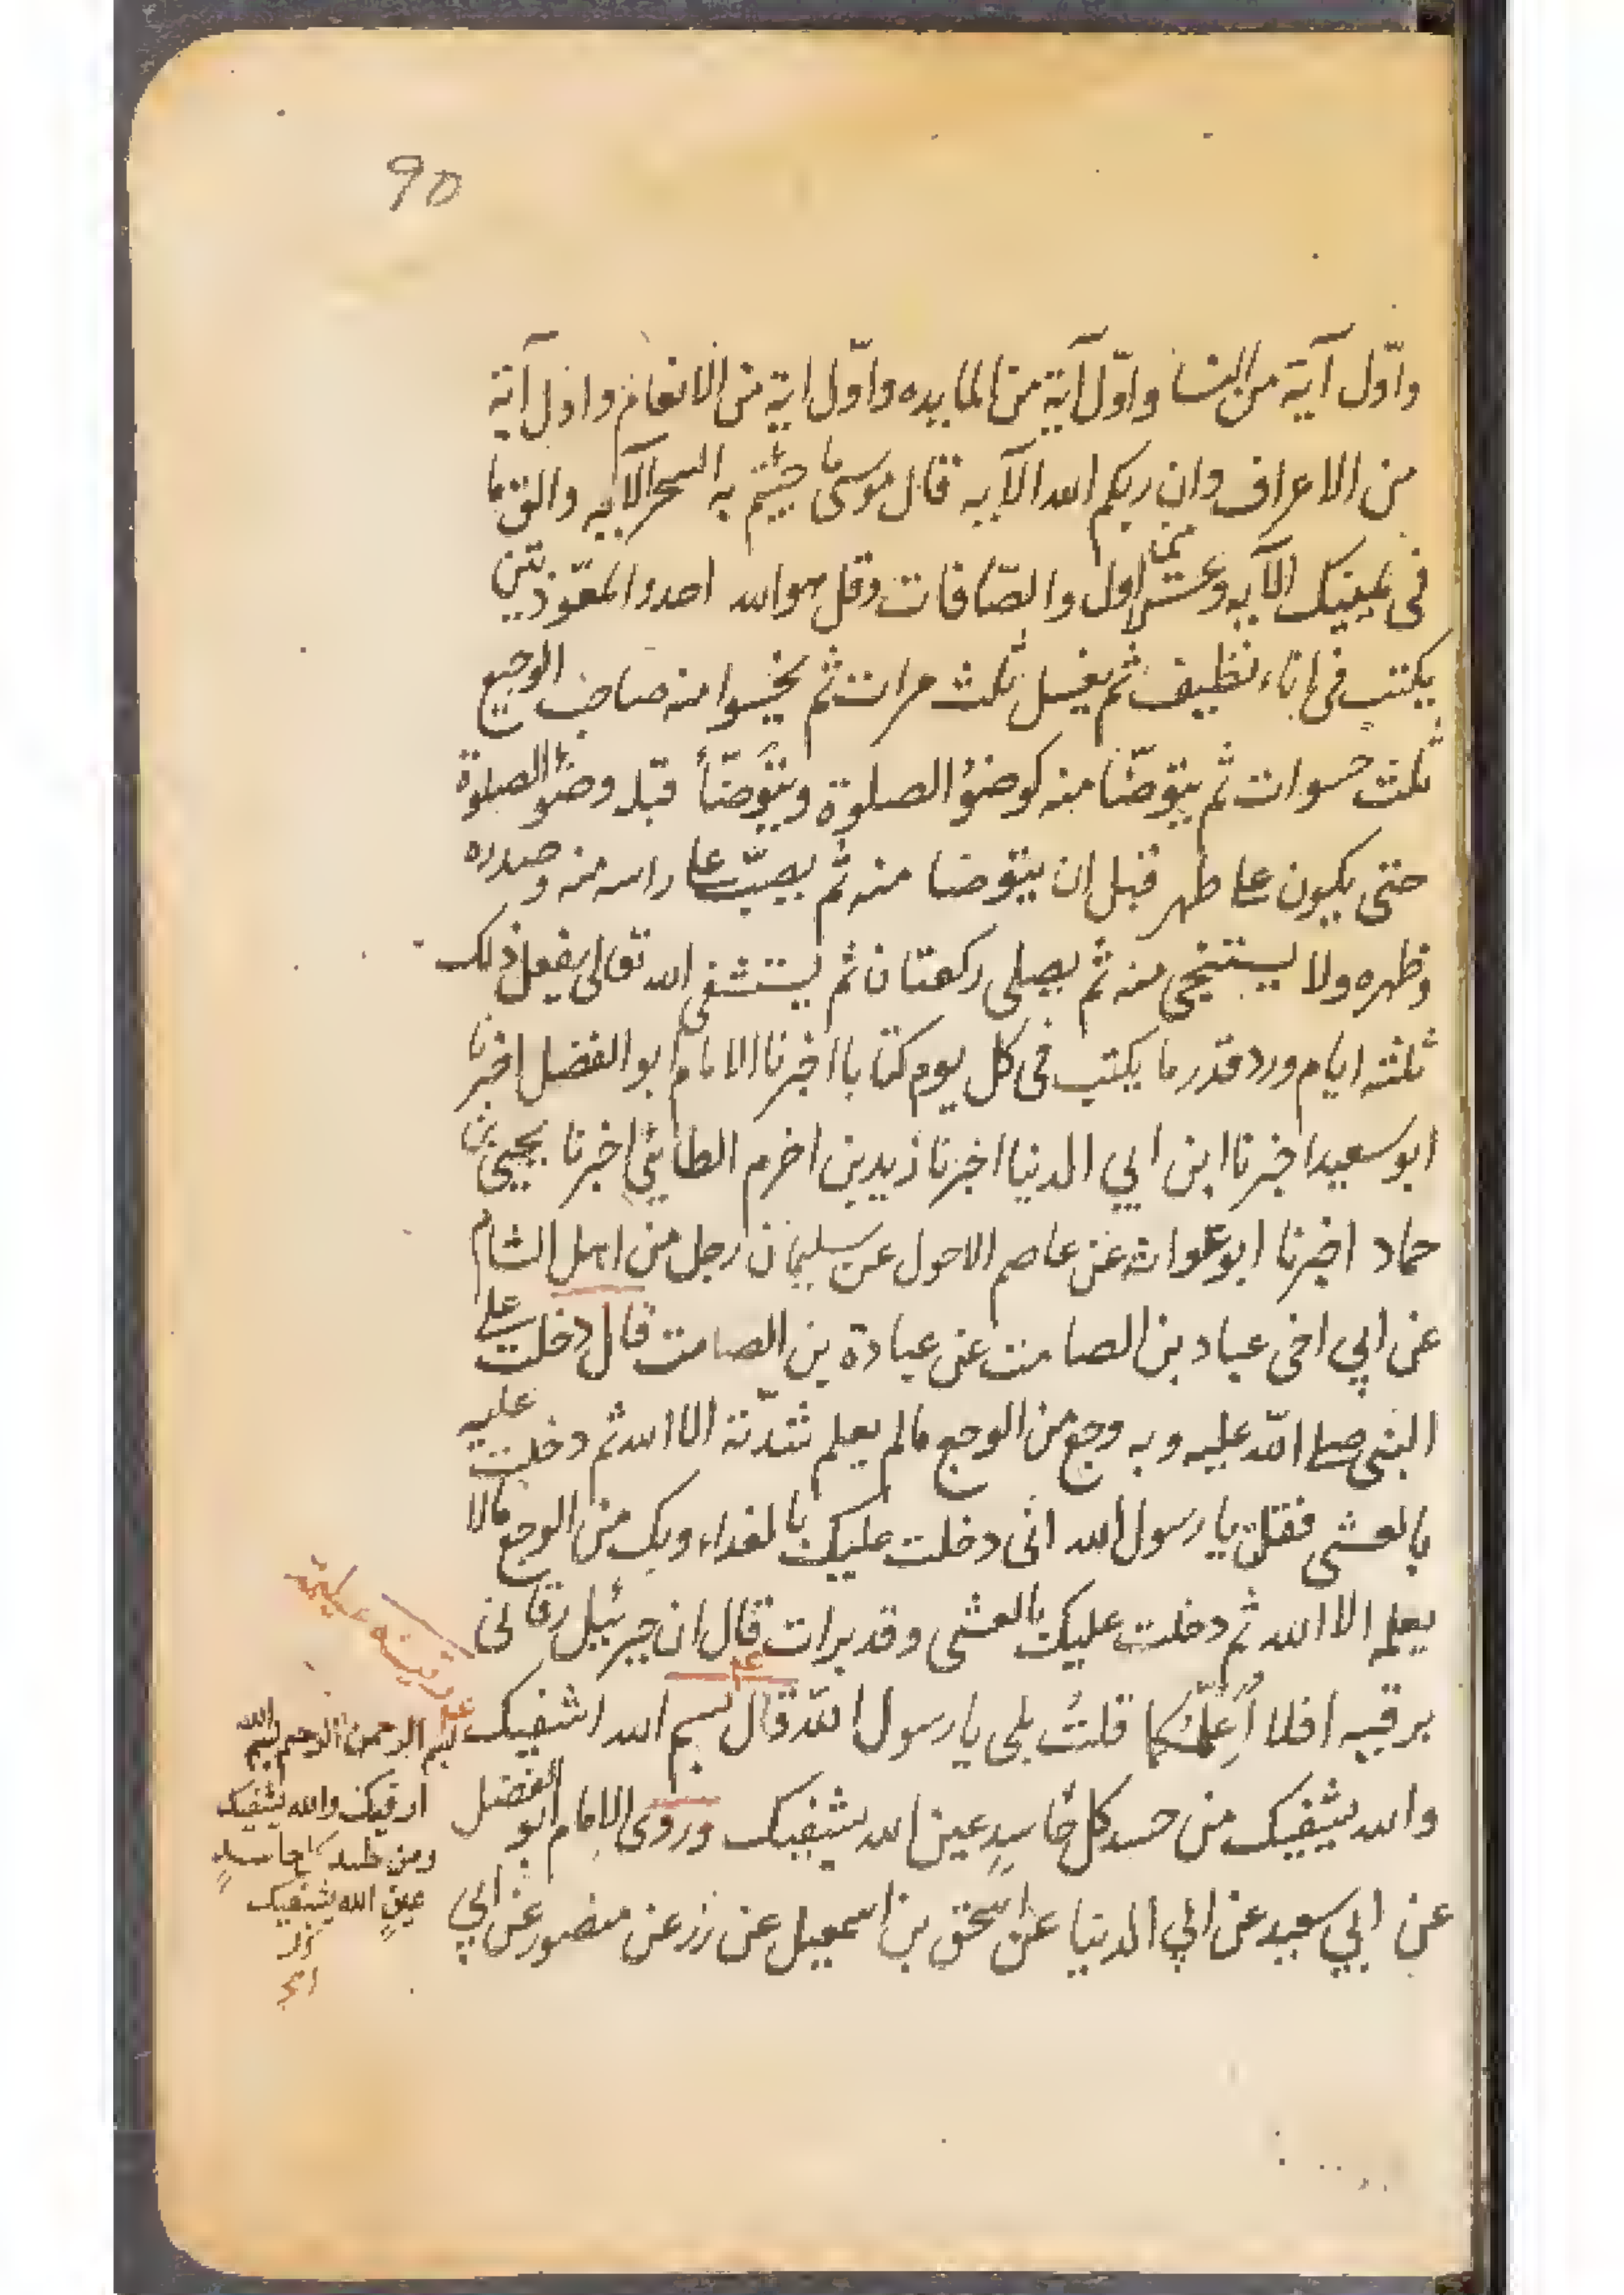 90
واوّل آية من النسا واوّل آية من المايده واوّل اية من الانعام واول آية
من الاعراف وان ربكم الله الآيه قال موسى ما جئتم به السحر الآيه والق ما
فى يمينك الآيه وعشر اول والصّافات وقل هو الله احد والمعوّذتين
يكتب فى اناء نظيف ثم يغسل ثلث مرات ثم يحسوا منه صاحب الوجيع
ثلث حسوات ثم يتوضّأ منه كوضؤ الصلوة ويتوضّأ قبل وضؤ الصلوة
حتى يكون على طهر قبل ان يتوضا منه ثم يصبّ على راسه منه وصدره
وظهره ولا يستنجى منه ثم يصلى ركعتان ثم يستشفى الله تعالى يفعل ذلك
ثلثه ايام ورد قدر ما يكتب فى كل يوم كتابا اخبرنا الامام ابو الفضل اخبرنا
ابو سعيد اخبرنا ابن ابي الدنيا اخبرنا زيد بن اخرم الطائي اخبرنا يحيى بن
حماد اخبرنا ابو عوانه عن عاصم الاحول عن سليمان رجل من اهل الشام
عن ابي اخى عباد بن الصامت عن عبادة بن الصامت قال دخلت على
النبى صلى الله عليه وبه وجع من الوجع مالم يعلم شدّته الا الله ثم دخلت عليه
بالعشى فقلت يا رسول الله انى دخلت عليك بالغداء وبك من الوجع مالا
يعلم الا الله ثم دخلت عليك بالعشى وقد برات قال ان جبرئيل رقانى
برقيه افلا أعلّمكما قلتُ بلى يا رسول الله قال بسم الله اشفيك
والله يشفيك من حسد كل حاسدٍ عين الله يشفيك وروى الامام ابو الفضل
عن ابي سعيد عن ابي الدنيا عن اسحق بن اسمعيل عن زر عن منصور عن ابي
بسم الرحمن الرحيم بسم الله
ارقيك والله يشفيك
ومن حسد كل حاسدٍ
عين الله يشفيك